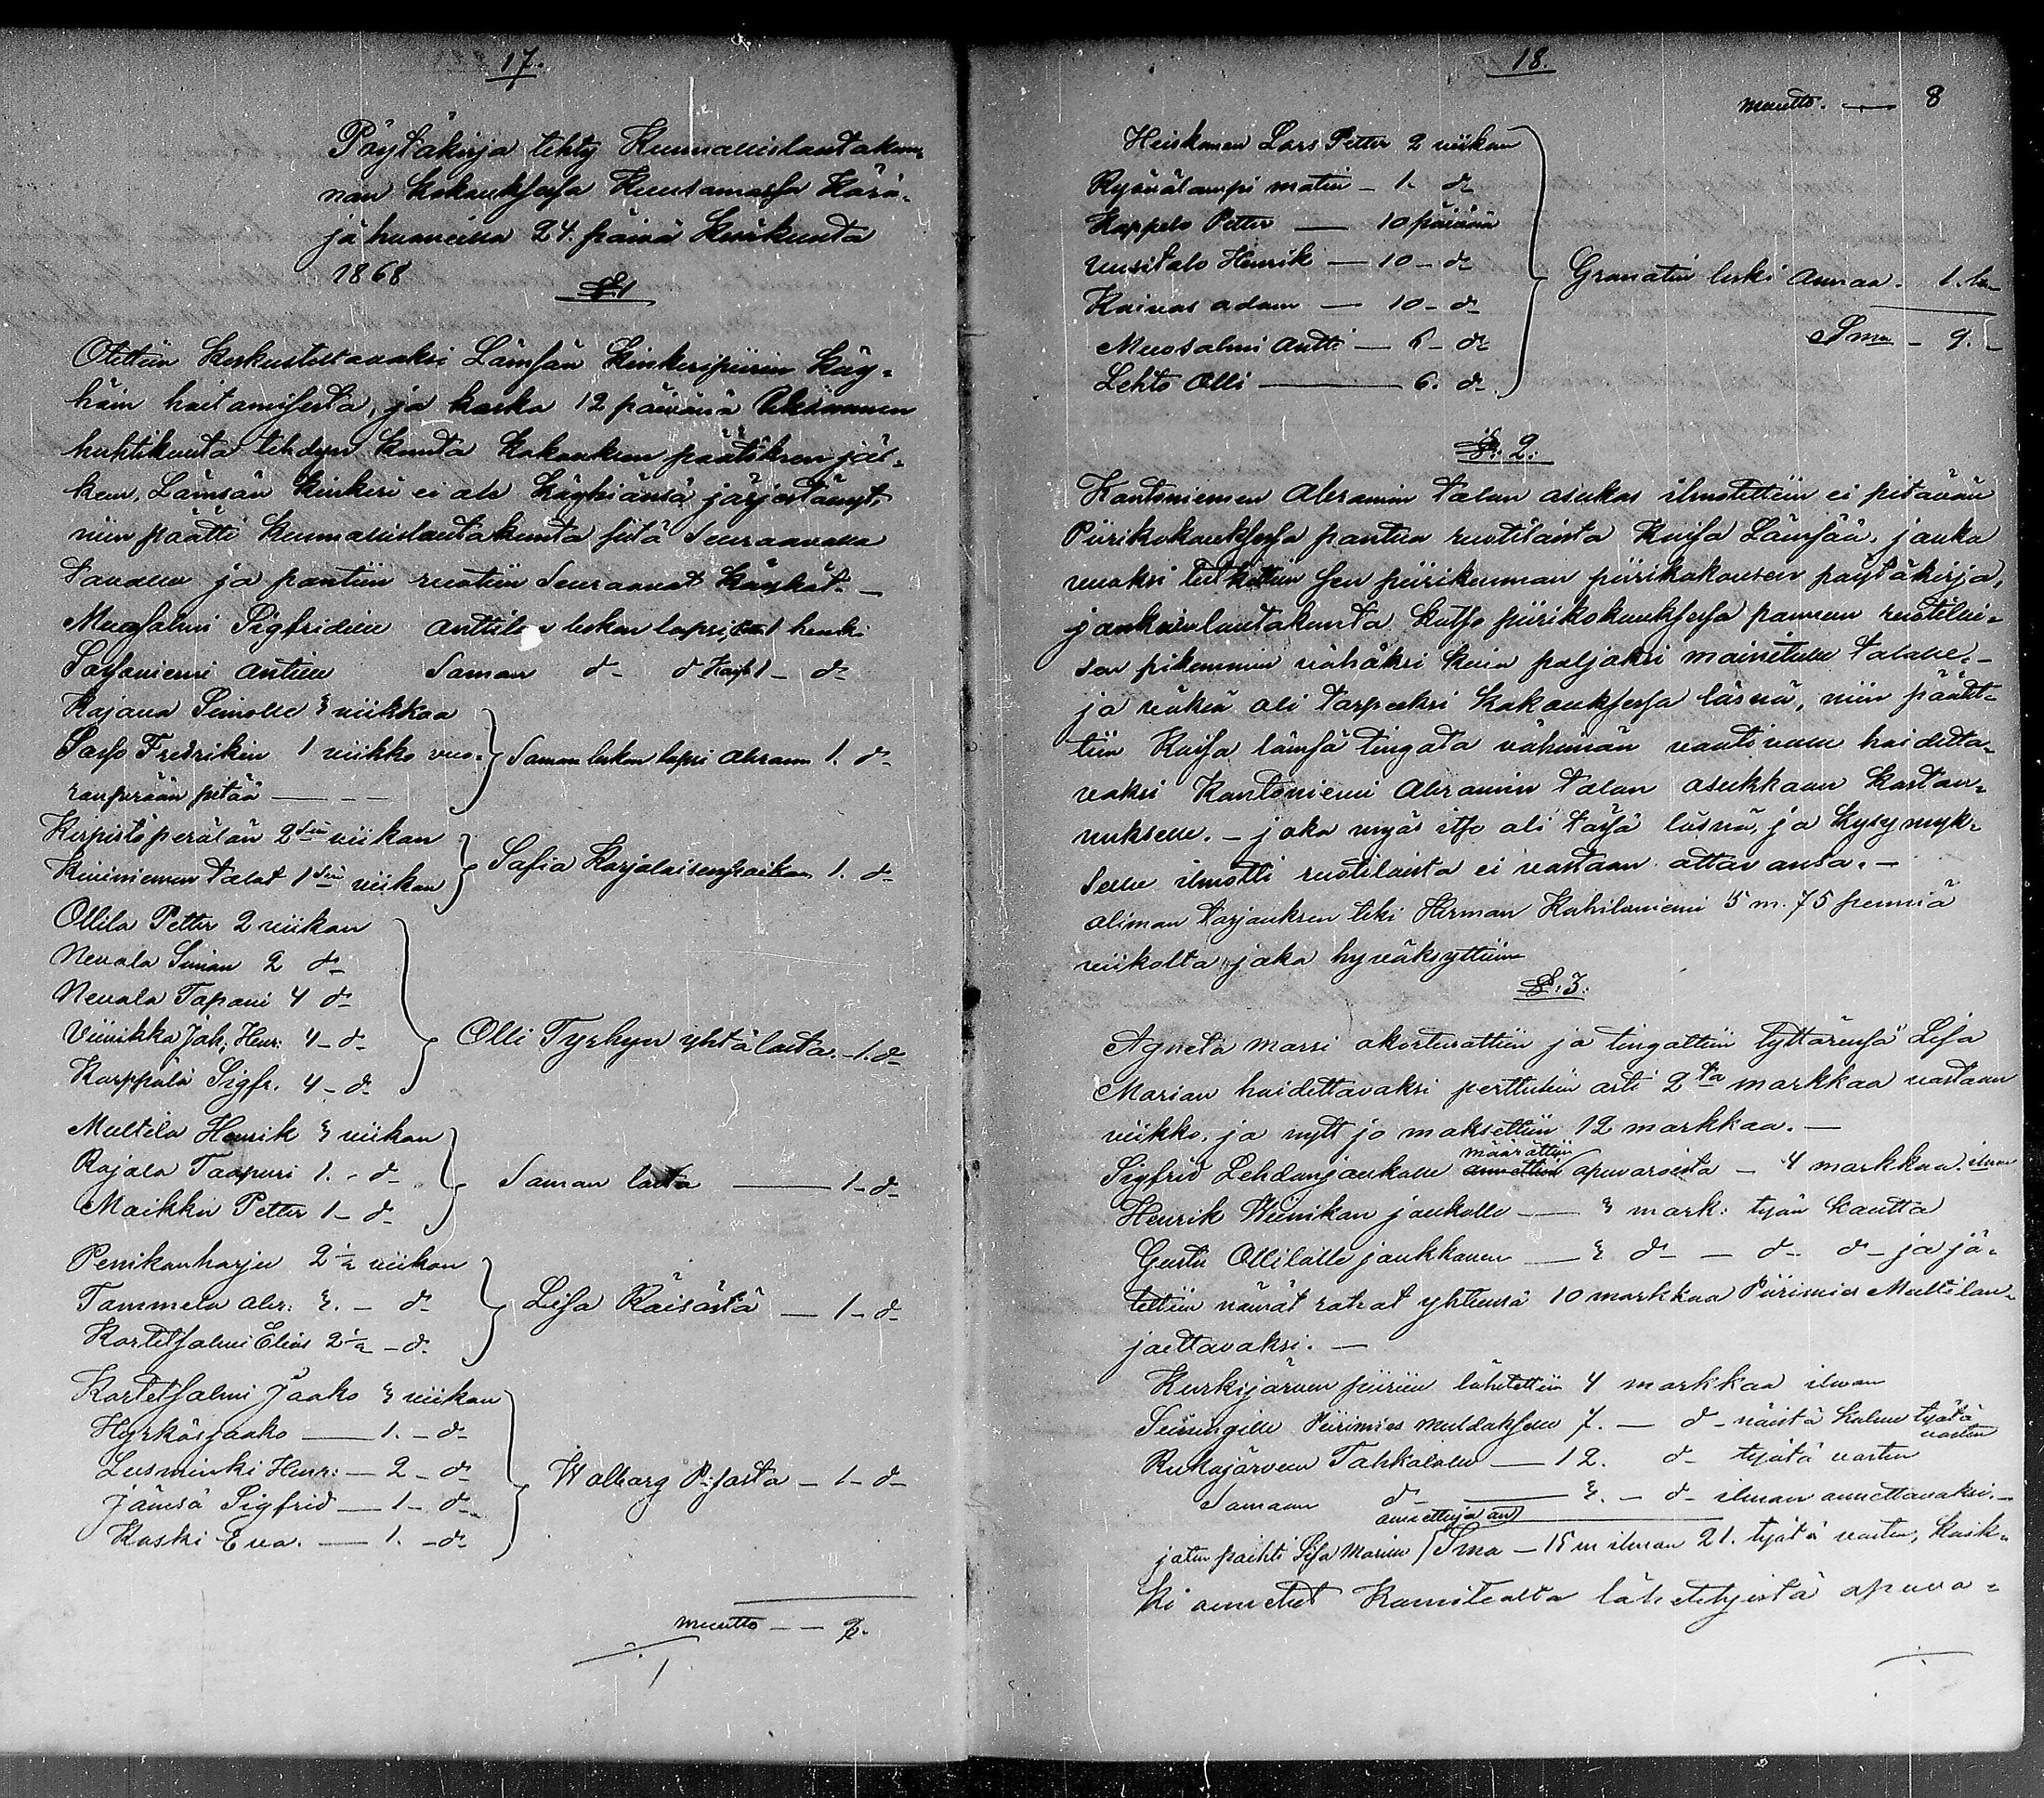 17.
Pöytäkirja tehty Kunnallislautakun-
nan Kokouksessa Kuusamossa Kärä-
jähuoneilla 24. päivä Kesäkuuta
1868
§ 1
Otettiin Keskusteltavaksi Lämsän Kinkeripiirin Köy-
häin hoitamisesta, ja koska 12 päivänä
huhtikuuta tehdyn Kunta Kokouksen päätöksen jäl-
keen, Lämsän kinkeri ei ole köyhiänsä järjestänyt,
niin päätti Kunnallislautakunta siitä Seuraavalla
Tavalla ja pantiin ruotiin Seuraavat Köyhät. —
Muosalmi Sigfridille Anttilan lesken lapsi 1 henki
Antille Saman d- d 1 - d-
Rajala Simolle 3 viikkoa
Fredrikin 1 viikko vuo-
ronperään pitää — — } Saman lesken lapsi Abram 1. d-
Kirpistöperälän 2 viikon
Kiviniemen talot 1 viikon } Sofia Karjalaisen 1. d-
Ollila Petter 2 viikon
Nevala Simon 2 d-
Nevala Tapani 4 d-
Viinikka Joh, Henr: 4 - d-
Karppala Sigfr. 4 - d- } Olli Tyrhyn yhtä lasta. - 1. d-
Multila Henrik 3 viikon
Rajala Taapuri 1. - d-
Maikku Petter 1 - d- } Saman lasta — 1 - d-
Penikanharju 2 ½ viikon
Tammela Abr: 3. - d-
Kortetsalmi Elias 2 ½ - d- } Lisa Räisästä — 1 - d-
Kortetsalmi Jaako 3 viikon
Hyrkäs Jaako — 1. - d-
Lusminki Henr: — 2 - d-
Jämsä Sigfrid — 1 - d-
Koski Eva. — 1. - d- } Walborg — 1 - d-
muutto — — 8.
18.
muutto. — 8
Heiskanen Lars Petter 2 viikon
Rysäälampi Matin - 1. d-
Kappelo Petter — 10 päivää
Uusitalo Henrik — 10 - d-
Kainas Adam — 10 - d-
Muosalmi Antti — 6 - d-
Lehto Olli — 6. d- } Granatin leski Annaa. 1.
Sma - 9. -
§. 2.
Kantoniemen Abramin talon asukas ilmotettiin ei pitävän
Piirikokouksessa pantua ruotilaista Kaisa Lämsää, jonka
vuoksi tutkittiin sen piirikunnan piirikokouksen pöytäkirja,
jonka lautakunta katso piirikokouksessa pannun ruotilai-
sen pikemmin vähäksi kuin paljoksi mainitulle talolle. —
ja väkeä oli tarpeeksi kokouksessa läsnä, niin päät-
tiin Kaisa Lämsä tingata vähimän vaativalle hoidetta-
vaksi Kantoniemi Abramin talon asukkaan kustan-
nukselle. — joka myös itse oli tässä läsnä, ja kysymyk-
selle ilmotti ruotilaista ei vastaan ottavansa. —
aliman tarjouksen teki Herman Kuhilaniemi 5 m. 75 penniä
viikolta joka hyväksyttiin
§. 3.
Agneta Marsi akorterattiin ja tingattiin tyttärensä Lisa
Marian hoidettavaksi perttuliin asti 2 markkaa vastaan
viikko, ja nytt jo maksettiin 12 markkaa. —
Sigfrid Lehdonjoukolle annettiin määrättiin apuvaroista — 4 markkaa ilman
Henrik Wiinikan joukolle — 3 mark: työn kautta
Gusti Ollilalle joukkonen — 3 d- — d- d- ja jä-
tettiin nämät rahat yhteensä 10 markkaa Piirimies Multilan
jaettavaksi. —
Kurkijärven piiriin lähetettiin 4 markkaa ilman
Piirimies 7. — d- näistä kolme työtä
vasten
Rukajärven Tahkolalle — 12. d- työtä vasten
Samaan d- — 3. - d- ilman annettavaksi. —
joten paitsi Lisa Marian Sma — 15 m ilman 21. työtä vasten, kaik-
ki annetut Komitealta lähetetyistä apuva-